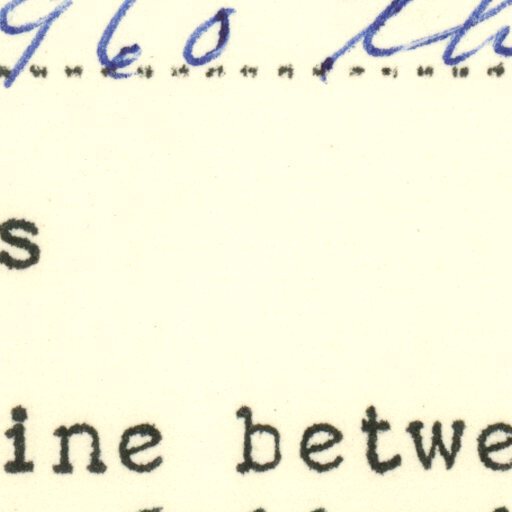 960
s
ine betwe